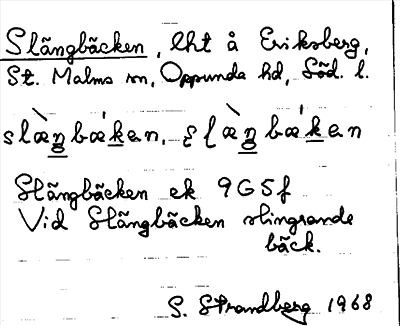 Slängbäcken, lht å Eriksberg,
St. Malms sn, Oppunda hd, Söd. l.
slæ̀ṉbǽḵen, slæ̀ṉbǽḵen
Slängbäcken ek 9G5f
Vid Slängbäcken slingrande
bäck.
S. Strandberg 1968